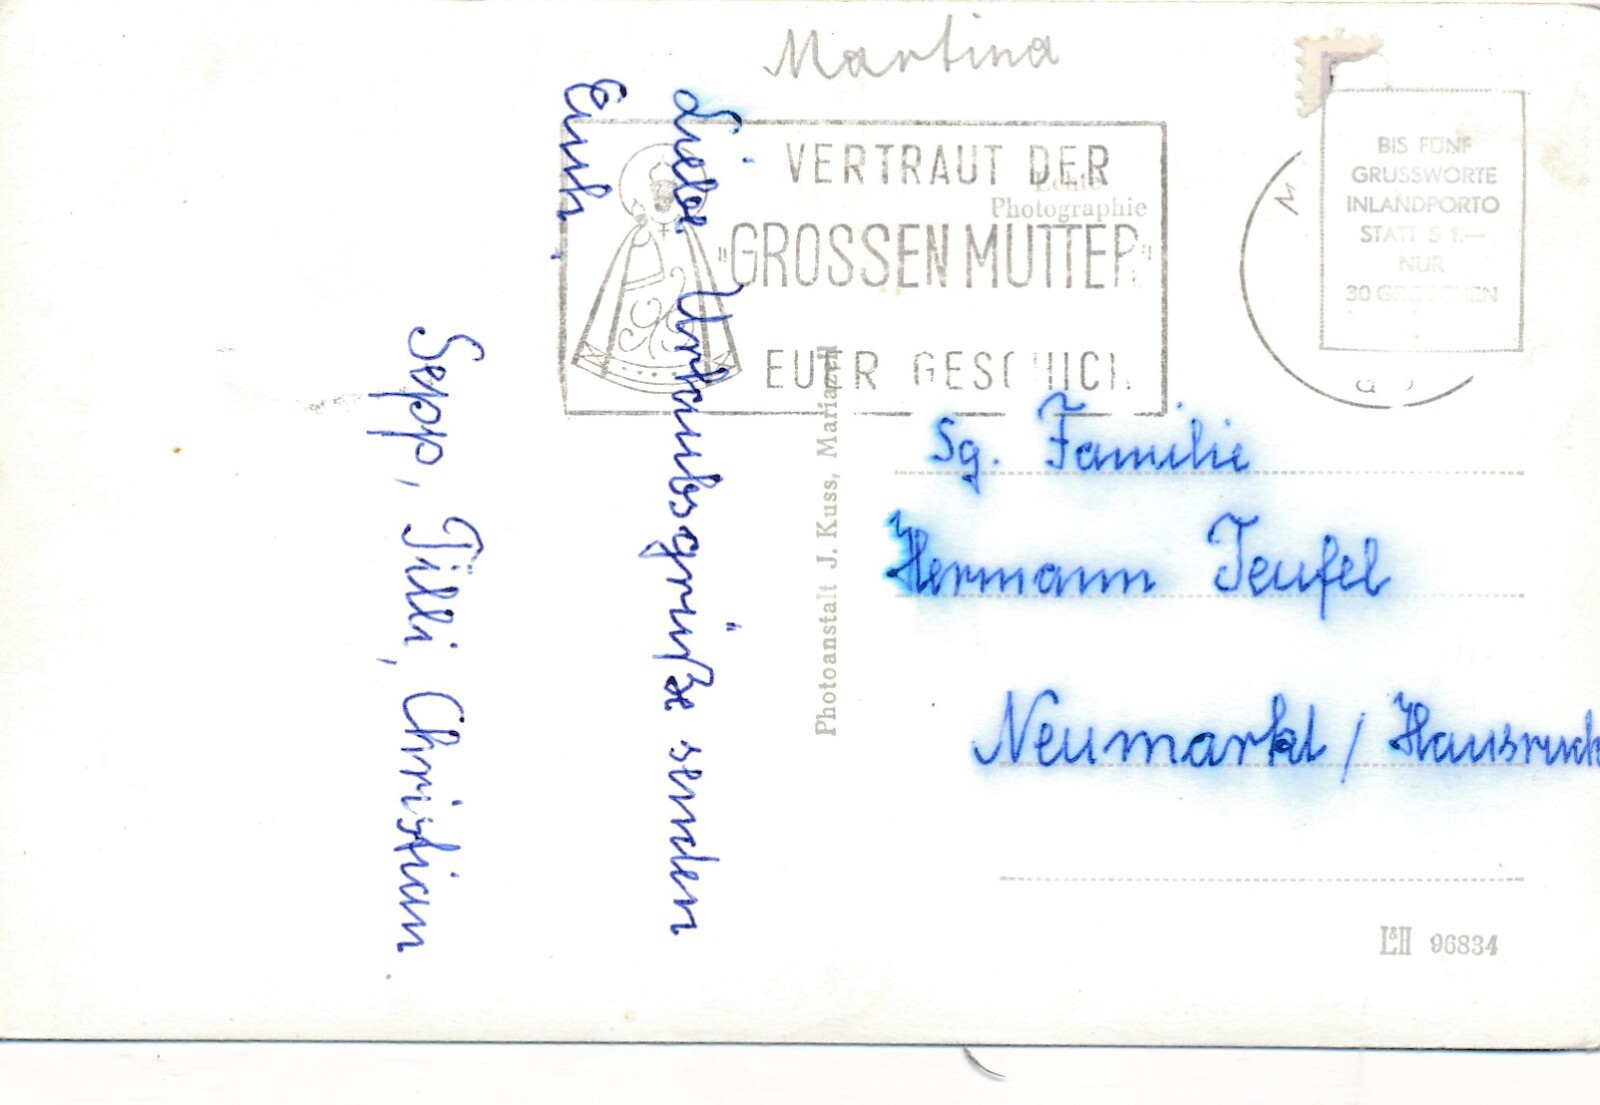 Martina
VERTRAUT DER
"GROSSEN MUTTER"
EUER GESCHICK
Echte
Photographie
BIS FÜNF
GRUSSWORTE
INLANDPORTO
STATT S 1.—
NUR
30 GROSCHEN
Liebe Urlaubsgrüße senden
Euch
Sepp, Tilli, Christian.
Photoanstalt J. Kuss, Mariazell
Sg. Familie
Hermann Teufel
Neumarkt / Hausruck
L&H 96834